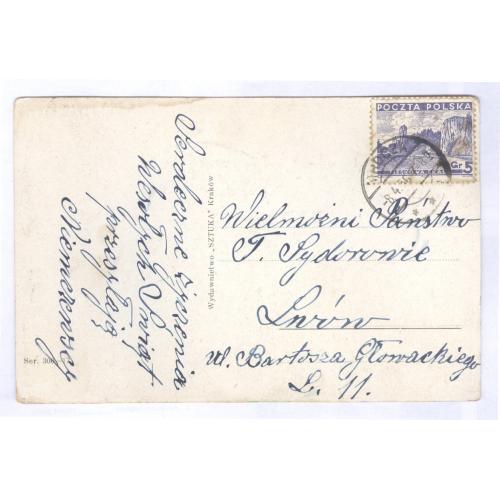 Serdeczne życzenia
Wesołych Świąt
przesyłają
Wydawnictwo „SZTUKA” Kraków
Ser. 306
POCZTA POLSKA
PIESKOWA SKAŁA
Gr 5
Wielmożni Państwo
T. Sydorowie
Lwów
ul. Bartosza Głowackiego
L. 11.